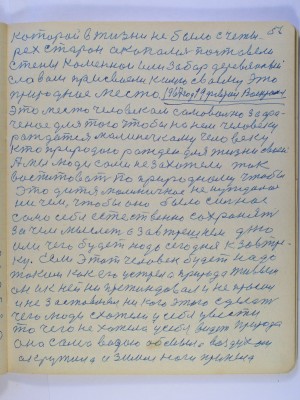 которой в жизни не было с четы 56
рех старон а копали поставили
стены каменной или забор деревянный
словом присвоили к имю своему это
природное место
это место человеком самовольно захва
ченое для того чтобы на нем человеку
рождатся маленькаму человеку
кто природою рожден для жизни своей
А мы люди сами не захотели так
воспитовать по природному чтобы
Это дитя маленичкое не нуждалося
ни чем, чтобы оно было сильное
само себя естественно сохраняет
за чем мыслить о завтрешнем дню
или чего будет надо сегодня к завтри
ку. Если этот человек будет надо
таким как его устрела природа живым
он ак ней ни притендовал и не просил
и не заставлял ни кого этого сделать
чего люди схотели у себя увести
то чего не хотела у себя видеть природа
она сама водою обмыла воздухом
окружила и землею ноги приняла